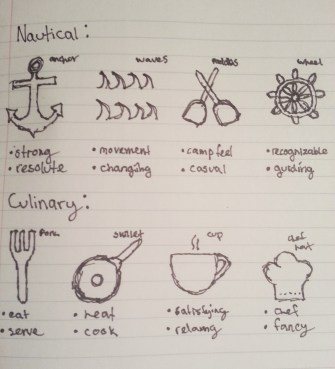 Nautical:
anchor waves paddles wheel
• strong • movement • camp feel • recognizable
• resolute • changing • casual • guiding
Culinary:
Fork skillet cup chef hat
• eat • heat • satisfying • chef
• serve • cook • relaxing • fancy